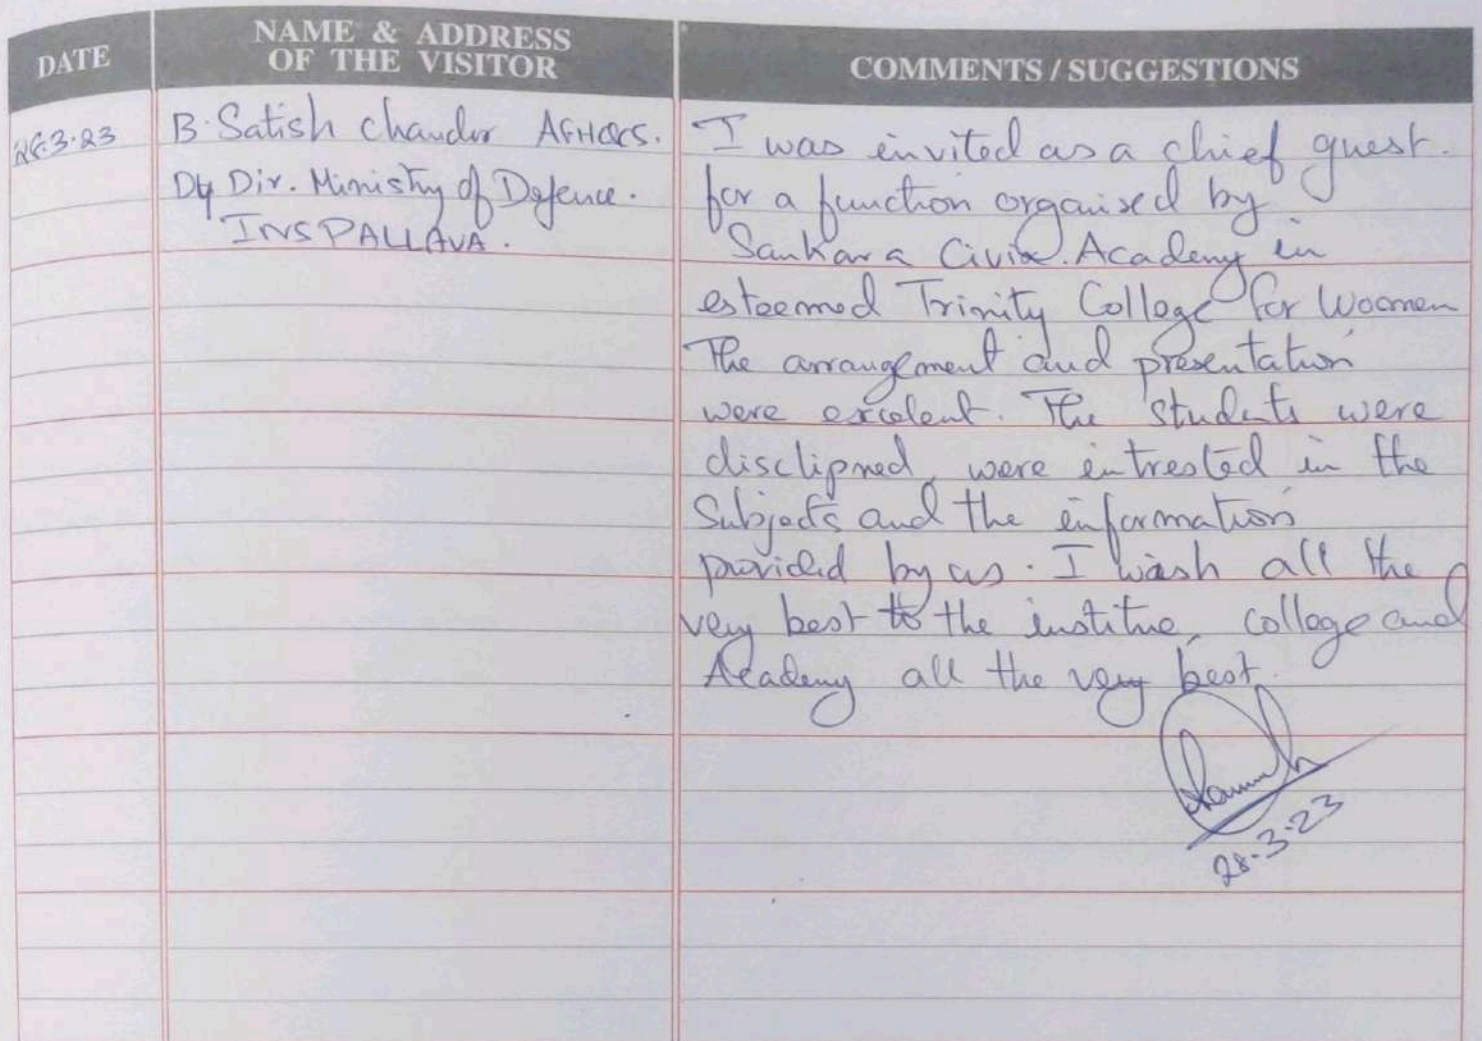 DATE
NAME & ADDRESS
OF THE VISITOR
COMMENTS / SUGGESTIONS
B. Satish Chander AFHQCS.
Dy Dir. Ministry of Defence.
INS PALLAVA.
I was invited as a chief guest.
for a function organised by
Sankara Academy in
esteemed Trinity College for Woomen
The arrangement and presentation
were excelent. The students were
disclipned, were intrested in the
Subjects and the information
provided by us. I wish all the
very best to the institue, college and
Academy all the very best.
28-3-23